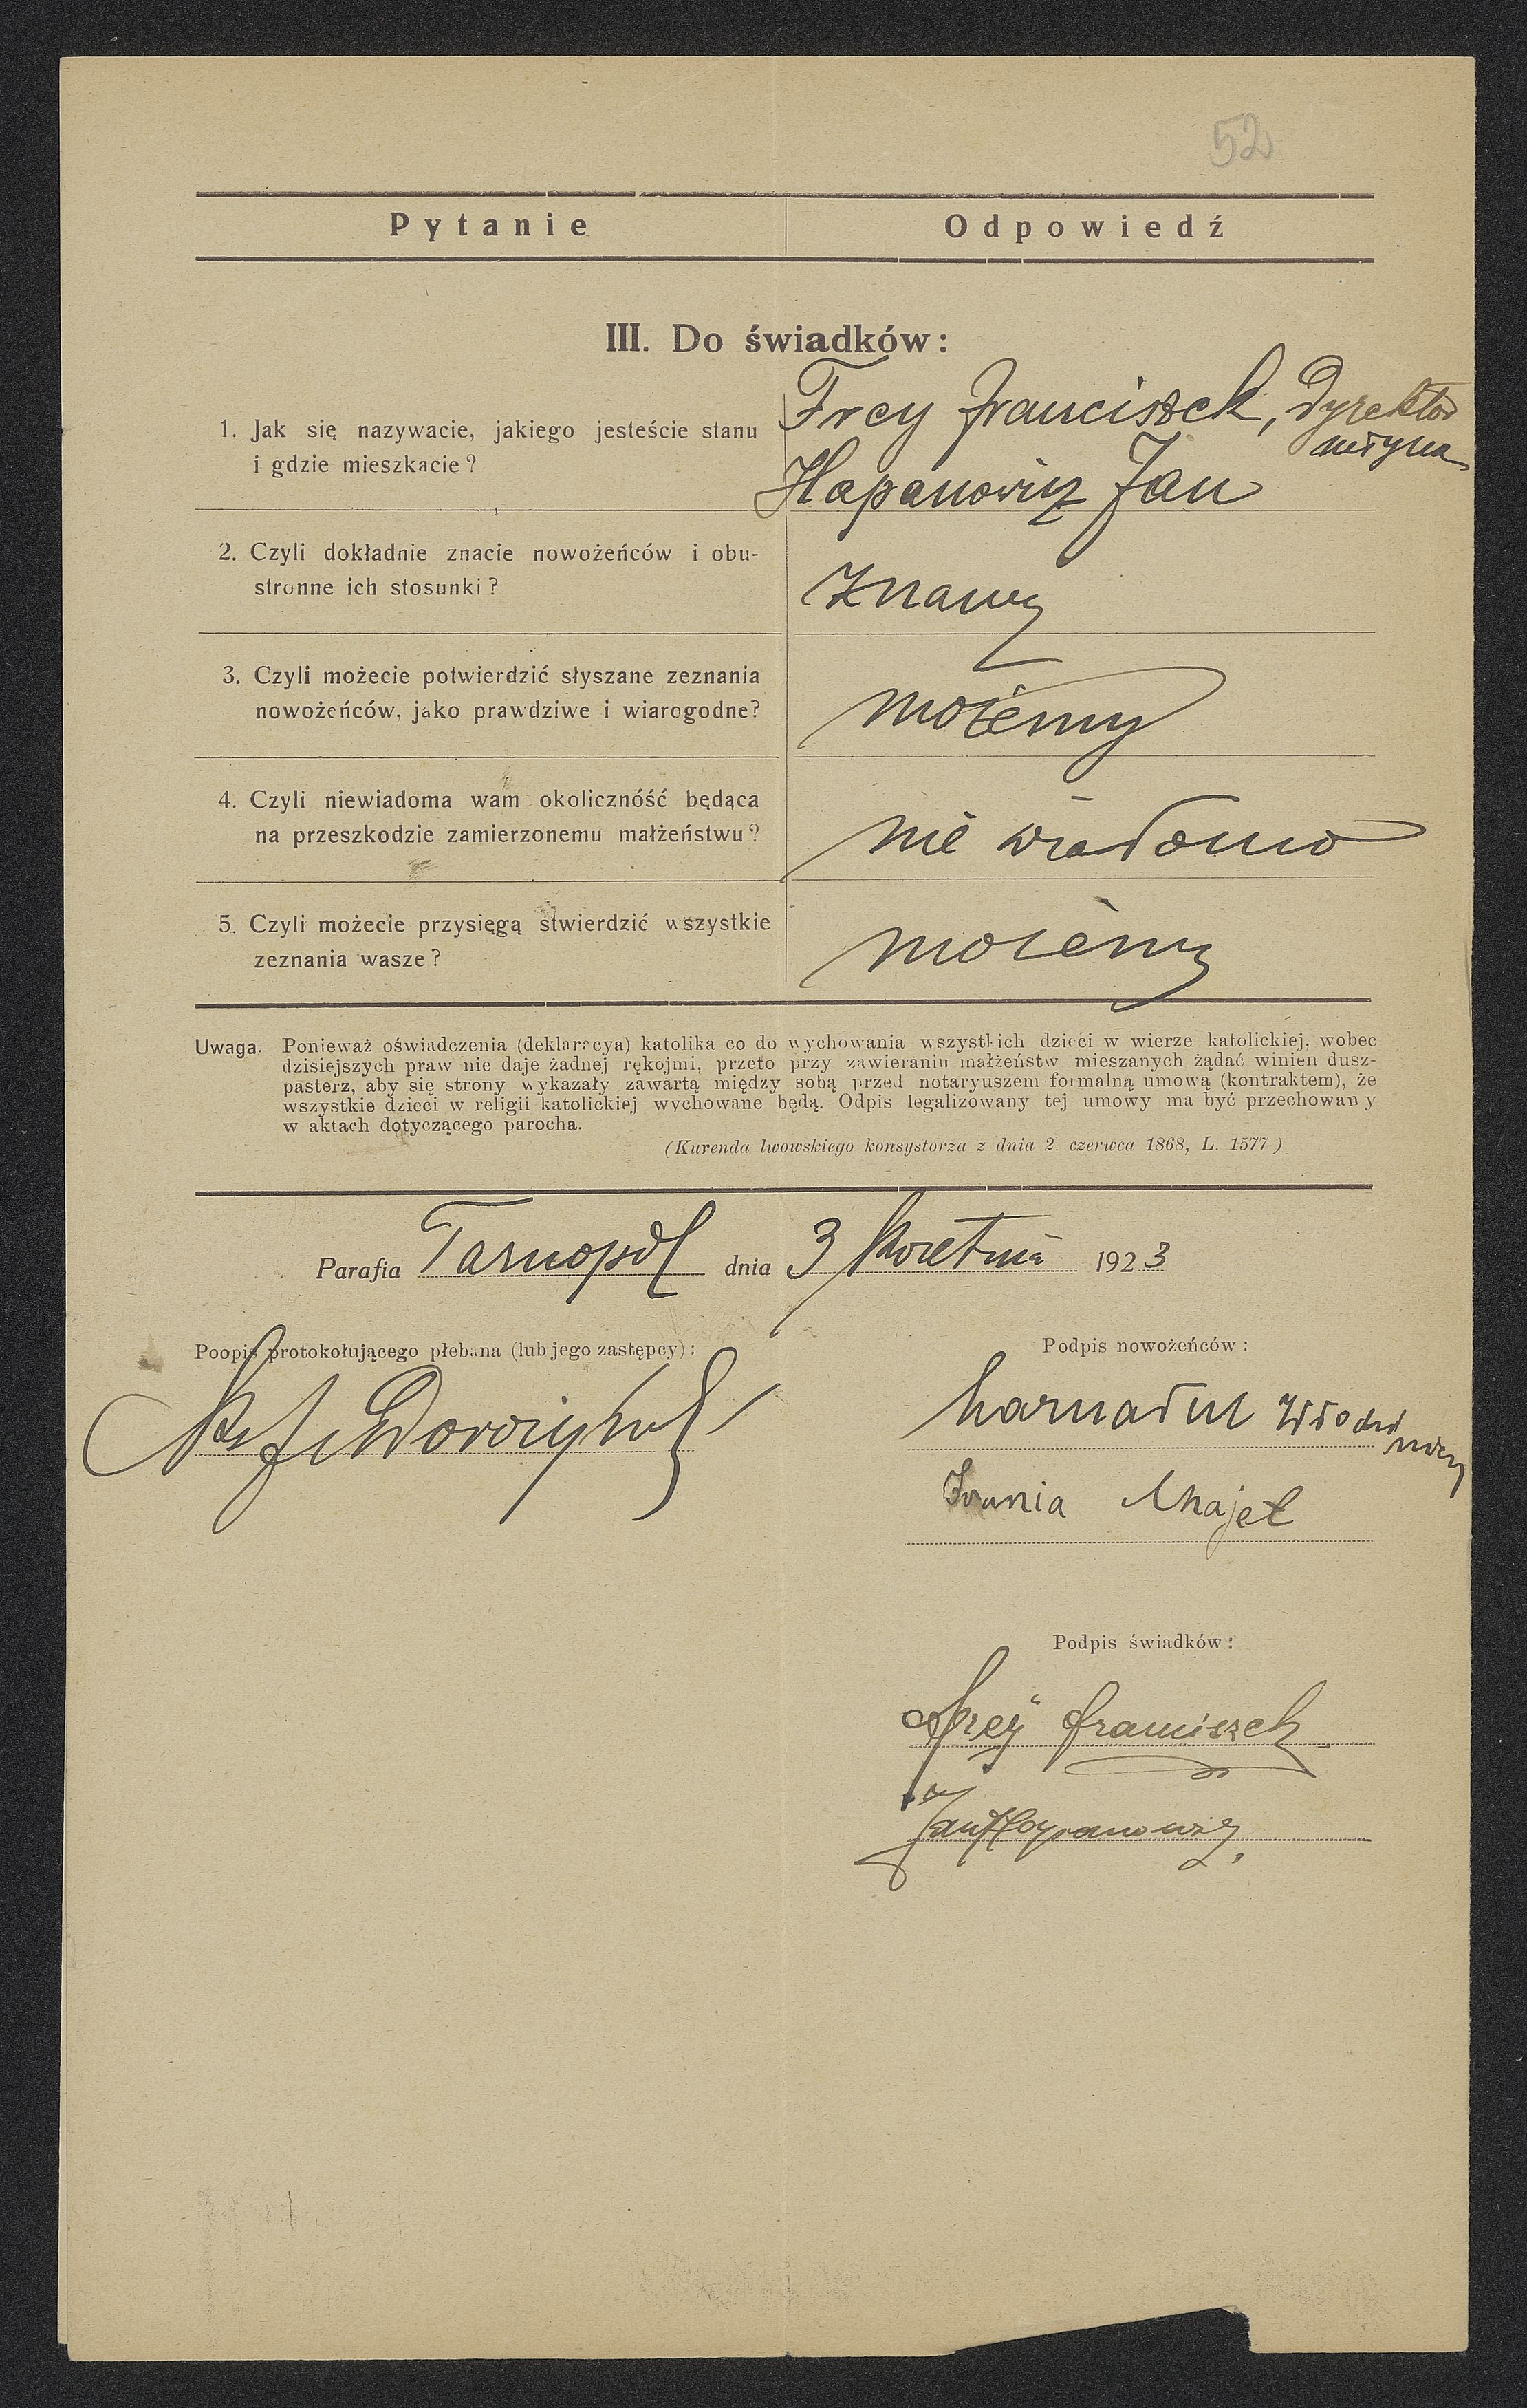 52
Pytanie Odpowiedź
III. Do świadków:
1. Jak się nazywacie, jakiego jesteście stanu
i gdzie mieszkacie?
Frey Franciszek, Dyrektor
młyna
Hapanowicz Jan
2. Czyli dokładnie znacie nowożeńców i obu-
stronne ich stosunki?
Znamy
3. Czyli możecie potwierdzić słyszane zeznania
nowożeńców, jako prawdziwe i wiarogodne?
możemy
4. Czyli niewiadoma wam okolicznóść będąca
na przeszkodzie zamierzonemu małżeństwu?
nie wiadomo
5. Czyli możecie przysięgą stwierdzić wszystkie
zeznania wasze?
możemy
Uwaga. Ponieważ oświadczenia (deklaracya) katolika co do wychowania wszystkich dzieci w wierze katolickiej, wobec
dzisiejszych praw nie daje żadnej rękojmi, przeto przy zawieraniu małżeństw mieszanych żądać winien dusz-
pasterz, aby się strony wykazały zawartą między sobą przed notaryuszem formalną umową (kontraktem), że
wszystkie dzieci w religii katolickiej wychowane będą. Odpis legalizowany tej umowy ma być przechowany
w aktach dotyczącego parocha.
(Kurenda lwowskiego konsystorza z dnia 2. czerwca 1868, L. 1577)
Parafia Tarnopol dnia 3 kwietnia 1923
Poopis protokołującego plebana (lub jego zastępcy):
Podpis nowożeńców:
Podpis świadków:
Frey Franciszek
Jan Hapanowicz